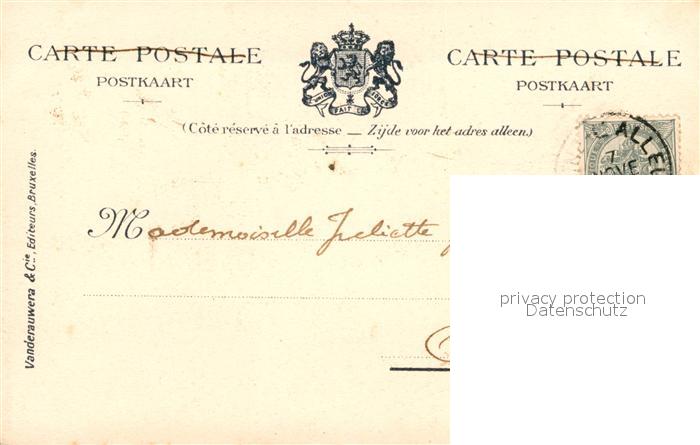 CARTE POSTALE CARTE POSTALE
POSTKAART POSTKAART
UNION FAIT LA FORCE
(Côté réservé à l'adresse — Zijde voor het adres alleen.)
ALLE
7
Mademoiselle Juliette
privacy protection
Datenschutz
Vanderauwera & Cie, Editeurs, Bruxelles.